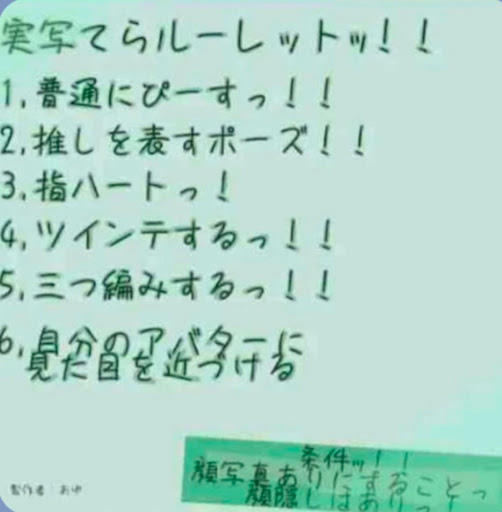 実写てらルーレットッ！！
1,普通にぴーすっ！！
2,推しを表すポーズ！！
3,指ハートっ！
4,ツインテするっ！！
5,三つ編みするっ！！
6,自分のアバターに
見た目を近づける
条件ッ！！
顔写真ありにすることっ
顔隠しはありっ！
製作者：おゆ